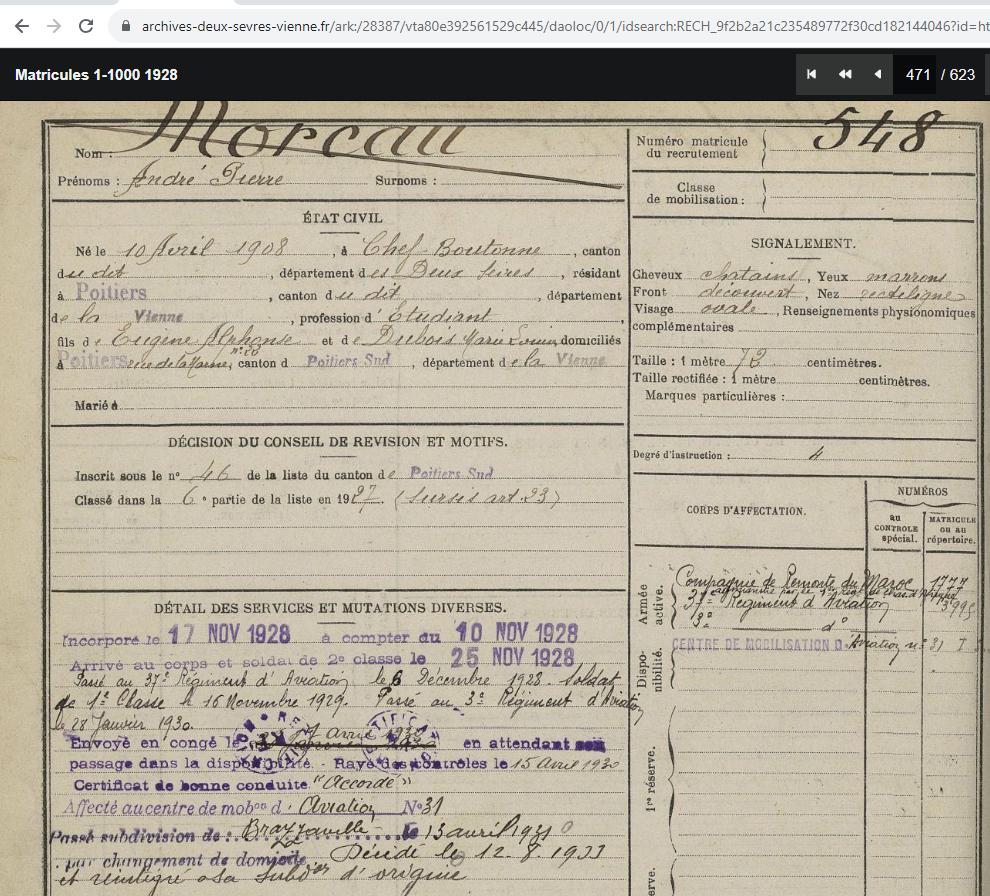 archives-deux-sevres-vienne.fr/ark:/28387/vta80e392561529c445/daoloc/0/1/idsearch:RECH_9f2b2a21c235489772f30cd182144046?id=ht
Matricules 1-1000 1928
471 / 623
Nom : Moreau
Prénoms : André Pierre Surnoms :
Numéro matricule du recrutement 548
Classe de mobilisation :
ÉTAT CIVIL
Né le 10 Avril 1908, à Chef-Boutonne, canton
du dit, département des Deux Sèvres, résidant
à Poitiers, canton du dit, département
de la Vienne, profession d'Etudiant,
fils de Eugène Alphonse et de Dubois Marie Louise domiciliés
à Poitiers rue de la Marne, n° 20 canton d Poitiers Sud, département de la Vienne
Marié à
SIGNALEMENT.
Cheveux chatains, Yeux marrons
Front découvert, Nez rectiligne
Visage ovale, Renseignements physionomiques
complémentaires
Taille : 1 mètre 72 centimètres.
Taille rectifiée : 1 mètre centimètres.
Marques particulières :
Degré d'instruction : 4
DÉCISION DU CONSEIL DE REVISION ET MOTIFS.
Inscrit sous le n° 46 de la liste du canton de Poitiers Sud
Classé dans la 6e partie de la liste en 1927. (Sursis art. 23)
CORPS D'AFFECTATION.
NUMÉROS
au CONTROLE spécial.
MATRICULE ou au répertoire.
Armée active.
Compagnie de Remonte du Maroc 1777
37e Régiment d'Aviation
3e do
Disponibilité.
CENTRE DE MOBILISATION D'Aviation n° 31
1re réserve.
DÉTAIL DES SERVICES ET MUTATIONS DIVERSES.
Incorporé le 17 NOV 1928 à compter du 10 NOV 1928
Arrivé au corps et soldat de 2e classe le 25 NOV 1928
Passé au 37e Régiment d'Aviation le 6 Décembre 1928. Soldat
de 1e Classe le 16 Novembre 1929. Passé au 3e Régiment d'Aviation
le 28 Janvier 1930.
Envoyé en congé le 17 avril 1930 en attendant son
passage dans la disponibilité - Rayé des contrôles le 15 Avril 1930
Certificat de bonne conduite "Accordé"
Affecté au centre de mobon d'Aviation N° 31
Passé subdivision de : Brazzaville le 13 avril 1931
par changement de domicile. Décédé le 12.8.1933
et réintégré à sa subdon d'origine